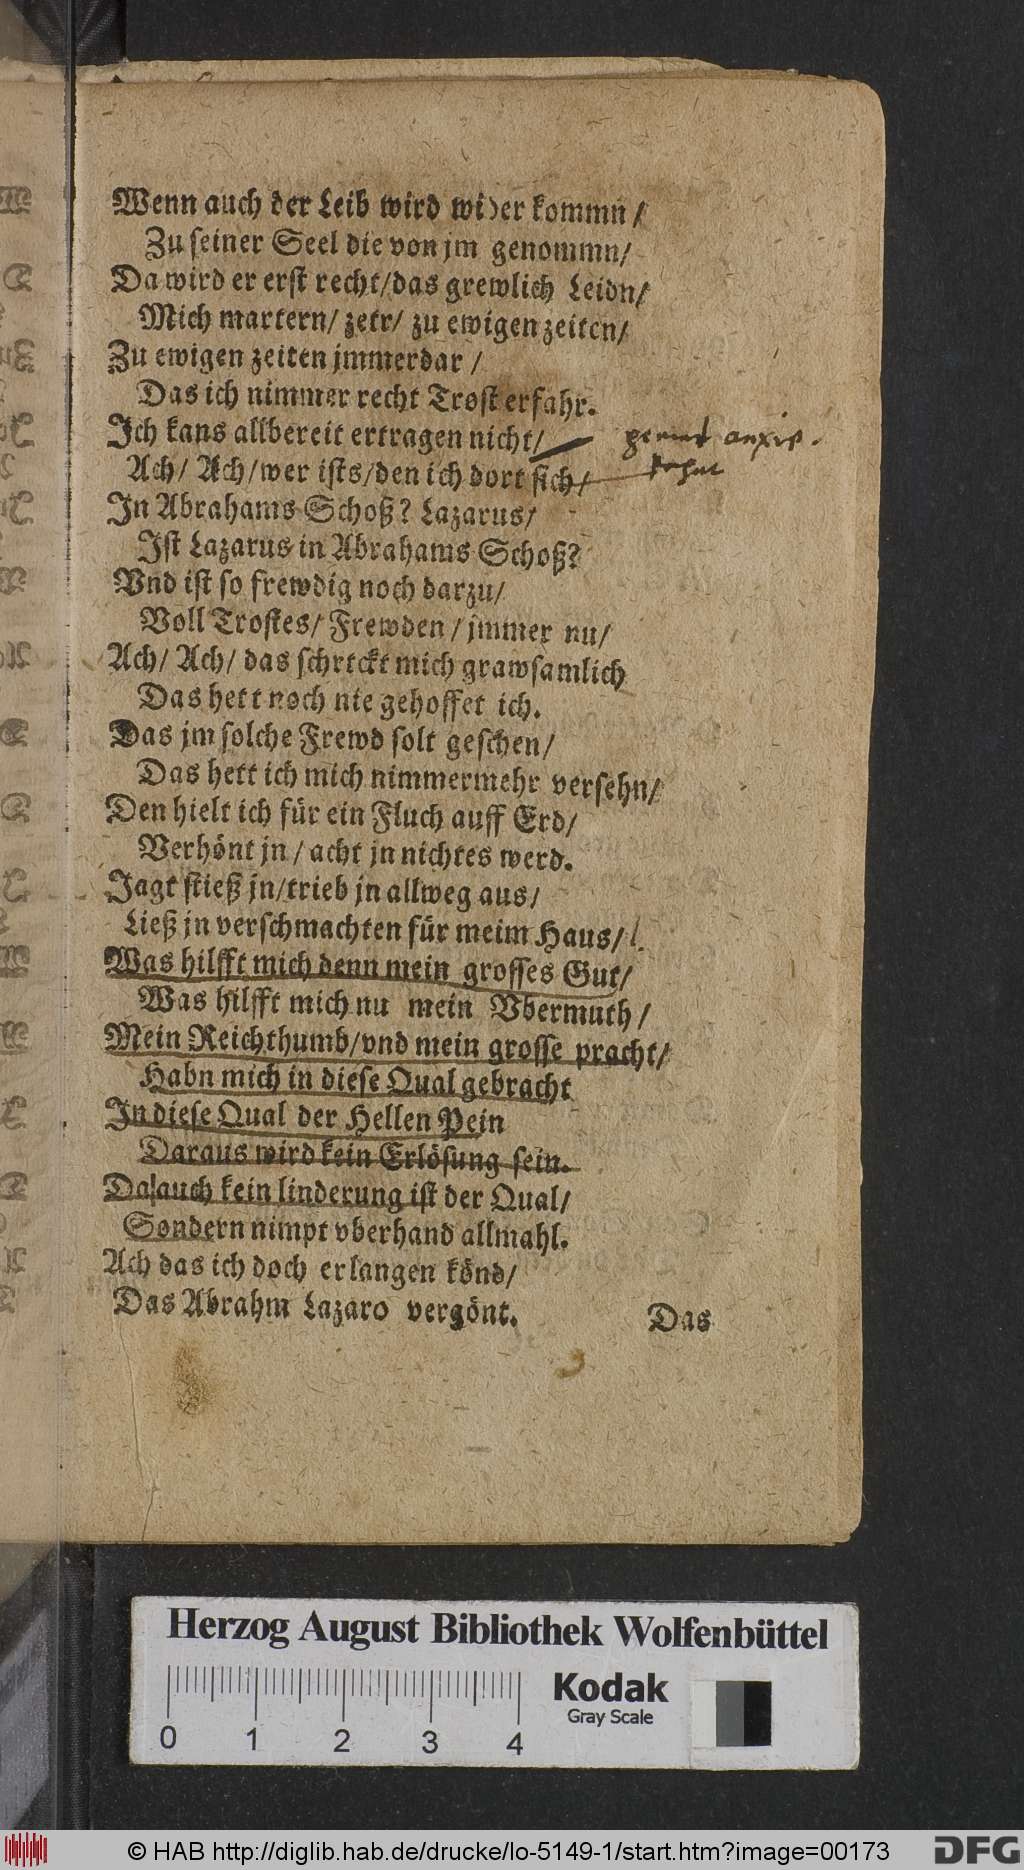 Wenn auch der Leib wird wider kommn /
Zu seiner Seel die von jm genommn/
Da wird er erst recht/das grewlich Leidn/
Mich martern/ zetr/ zu ewigen zeiten/
Zu ewigen zeiten jmmerdar /
Das ich nimmer recht Trost erfahr.
Ich kans allbereit ertragen nicht/
Ach/ Ach/wer ists/den ich dort sich/
In Abrahams Schoß? Lazarus/
Ist Lazarus in Abrahams Schoß?
Vnd ist so frewdig noch darzu/
Voll Trostes/ Frewden / jmmer nu/
Ach/ Ach/ das schreckt mich grawsamlich
Das hett noch nie gehoffet ich.
Das jm solche Frewd solt geschen/
Das hett ich mich nimmermehr versehn/
Den hielt ich für ein Fluch auff Erd/
Verhönt jn / acht jn nichtes werd.
Jagt stieß jn/trieb jn allweg aus/
Ließ jn verschmachten für meim Haus/
Was hilfft mich denn mein grosses Gut/
Was hilfft mich nu mein Vbermuth /
Mein Reichthumb/vnd mein grosse pracht/
Habn mich in diese Qual gebracht
In diese Qual der Hellen Pein
Daraus wird kein Erlösung sein.
Da auch kein linderung ist der Qual/
Sondern nimpt vberhand allmahl.
Ach das ich doch erlangen könd/
Das Abrahm Lazaro vergönt.
Das
Herzog August Bibliothek Wolfenbüttel
Kodak
Gray Scale
0 1 2 3 4
© HAB http://diglib.hab.de/drucke/lo-5149-1/start.htm?image=00173
DFG